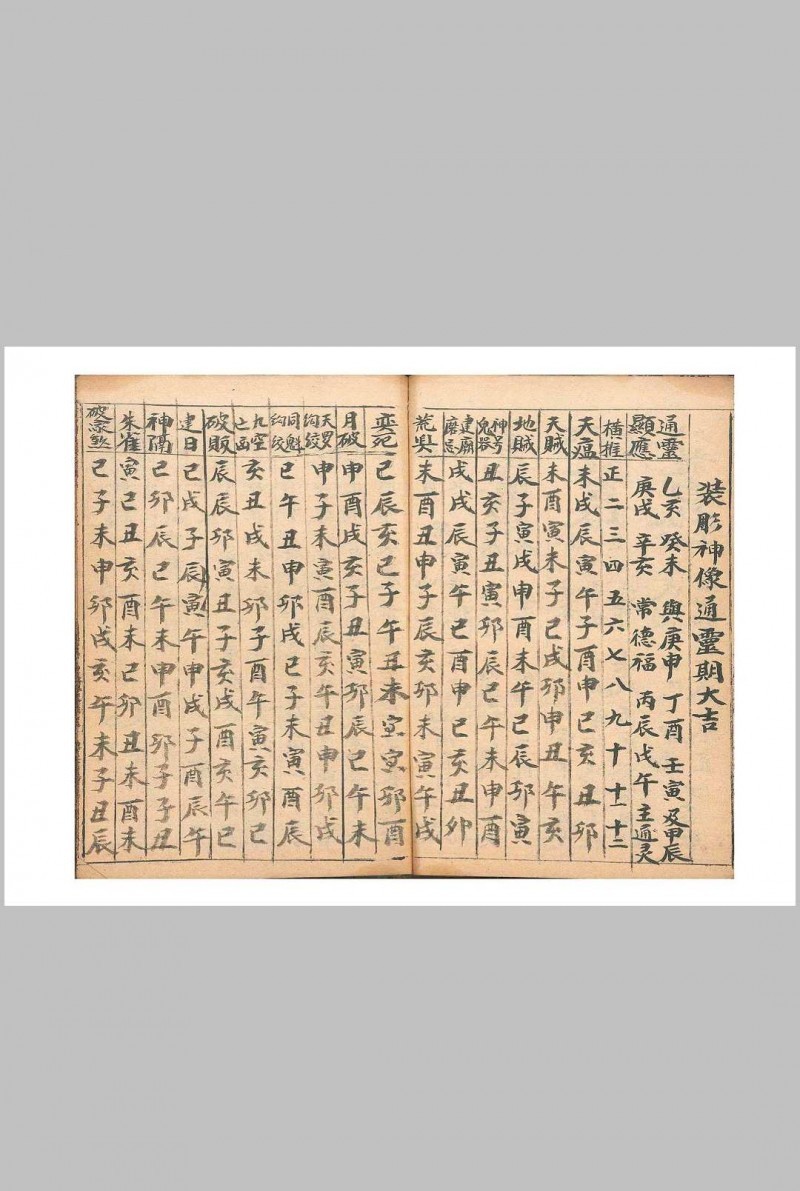 装彫神像通靈期大吉
通靈 乙亥 癸未 與庚申 丁酉 壬寅 及甲辰
顯應 庚戌 辛亥 常德福 丙辰戊午主通灵
橫推 正二三四五六七八九十十一十二
天瘟 未戌辰寅午子酉申巳亥丑卯
天賊 未酉寅未子已戌申丑午亥
地賊 辰子寅戌申酉未午已辰卯寅
神号鬼哭 丑亥子丑寅卯辰已午未申酉
建廟 戌戌辰寅午已酉申已亥丑卯
荒吳 未酉丑申子辰亥卯未寅午戌
已辰亥已子午丑未寅寅卯酉
月破 申酉戌亥子丑寅卯辰已午未
天罗勾絞 申子未寅酉辰亥午丑申卯戌
同魁勾绞 已午丑申卯戌已子未寅酉辰
九空 亥丑戌未卯子酉午寅亥卯已
破敗 辰辰卯寅丑子亥戌酉亥午已
建日 已戌子辰寅午申戌子酉辰午
神隔 已卯辰已午未申酉卯子子丑
朱雀 寅已丑亥酉未已卯丑未酉未
破家煞 已子未申卯戌亥午未子丑辰